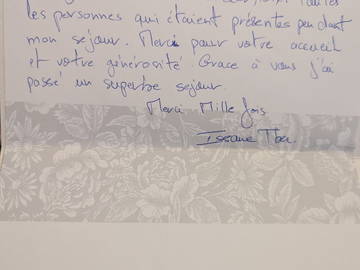 les personnes qui étaient présentes pendant
mon sejour. Merci pour votre accueil
et votre générosité. Grace à vous j'ai
passé un superbe sejour.
Merci Mille fois